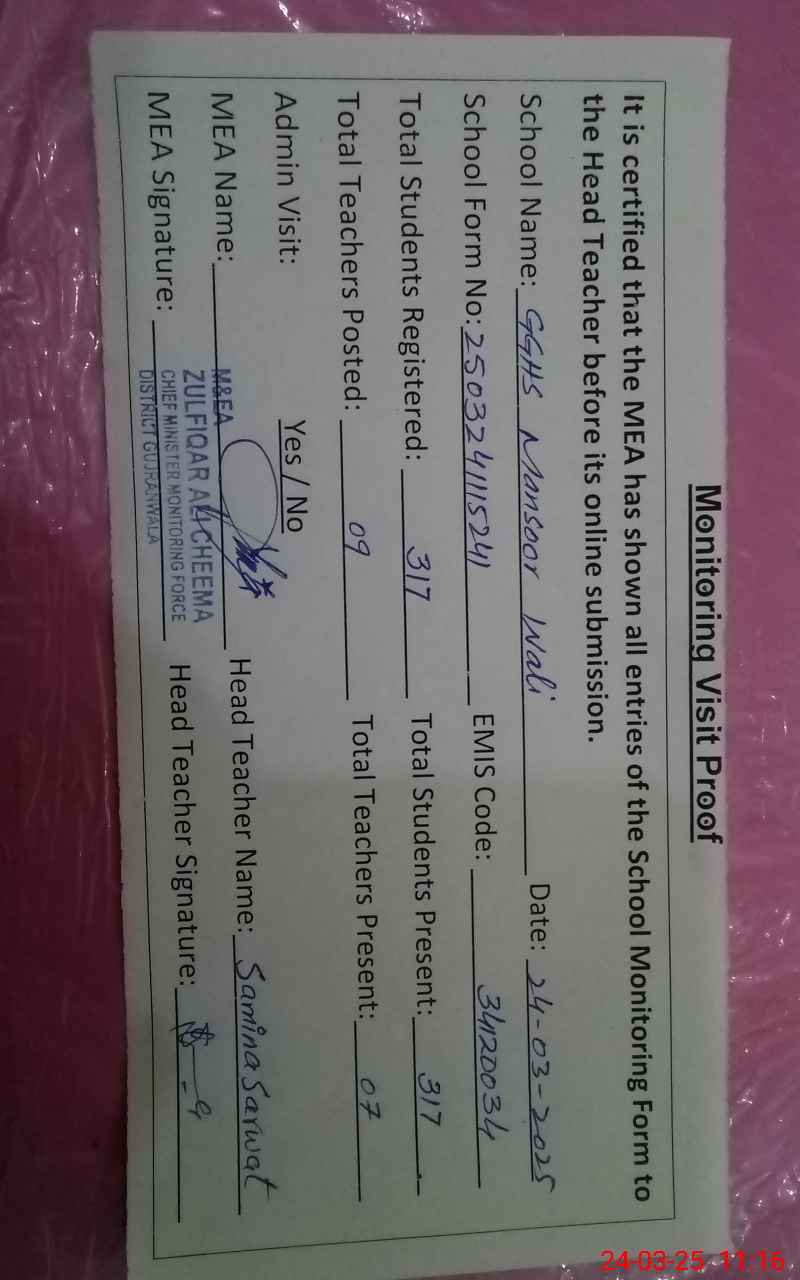 Monitoring Visit Proof
It is certified that the MEA has shown all entries of the School Monitoring Form to
the Head Teacher before its online submission.
School Name: GGHS Mansoor Wali Date: 24-03-2025
School Form No: 250324115241 EMIS Code: 34120034
Total Students Registered: 317 Total Students Present: 317
Total Teachers Posted: 09 Total Teachers Present: 07
Admin Visit: Yes / No
MEA Name: Head Teacher Name: Samina Sarwat
MEA Signature: Head Teacher Signature:
M&EA
ZULFIQAR ALI CHEEMA
CHIEF MINISTER MONITORING FORCE
DISTRICT GUJRANWALA
24-03-25 11:16